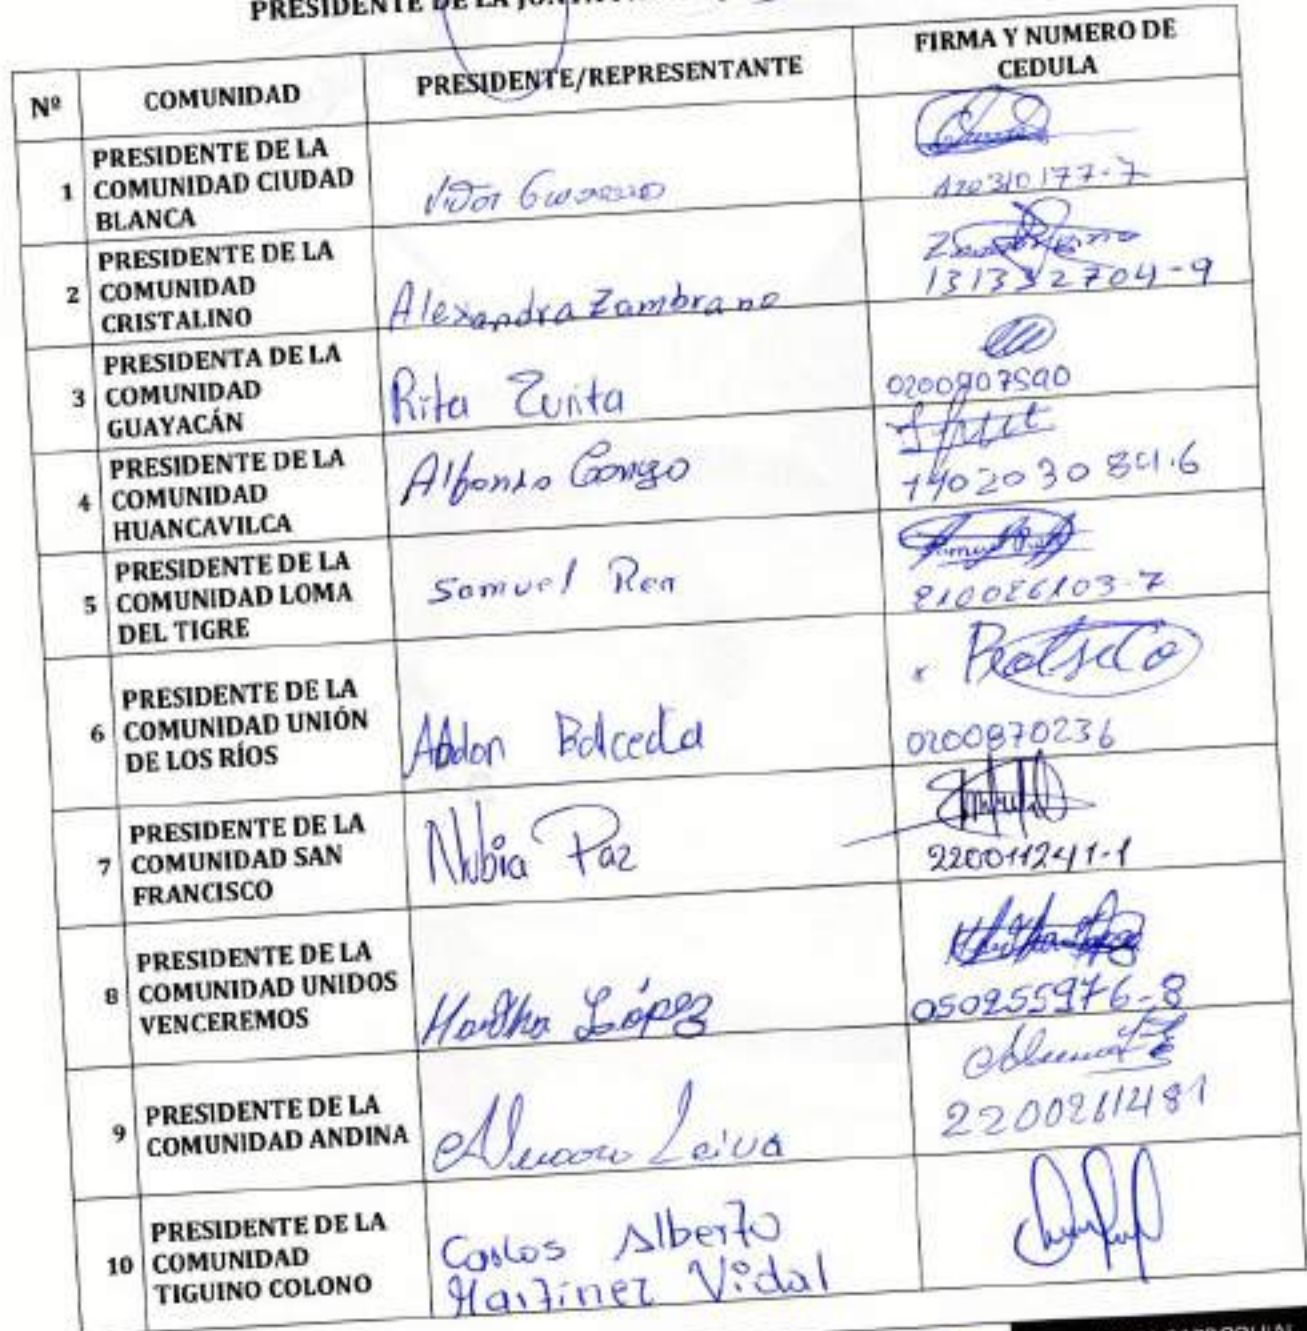 PRESIDENTE DE LA
Nº COMUNIDAD PRESIDENTE/REPRESENTANTE FIRMA Y NUMERO DE CEDULA
1 PRESIDENTE DE LA
COMUNIDAD CIUDAD
BLANCA
120310177-7
2 PRESIDENTE DE LA
COMUNIDAD
CRISTALINO
Alexandra Zambrano
131332704-9
3 PRESIDENTA DE LA
COMUNIDAD
GUAYACÁN
Rita Zurita
0200907590
4 PRESIDENTE DE LA
COMUNIDAD
HUANCAVILCA
Alfonso Congo
1402030 84.6
5 PRESIDENTE DE LA
COMUNIDAD LOMA
DEL TIGRE
Samuel Rea
210026103-7
6 PRESIDENTE DE LA
COMUNIDAD UNIÓN
DE LOS RÍOS
Abdon Balceda
0200870236
7 PRESIDENTE DE LA
COMUNIDAD SAN
FRANCISCO
Nubia Paz
220011241-1
8 PRESIDENTE DE LA
COMUNIDAD UNIDOS
VENCEREMOS
Martha López
050255976-8
9 PRESIDENTE DE LA
COMUNIDAD ANDINA
Leiva
2200261481
10 PRESIDENTE DE LA
COMUNIDAD
TIGUINO COLONO
Carlos Alberto
Martinez Vidal